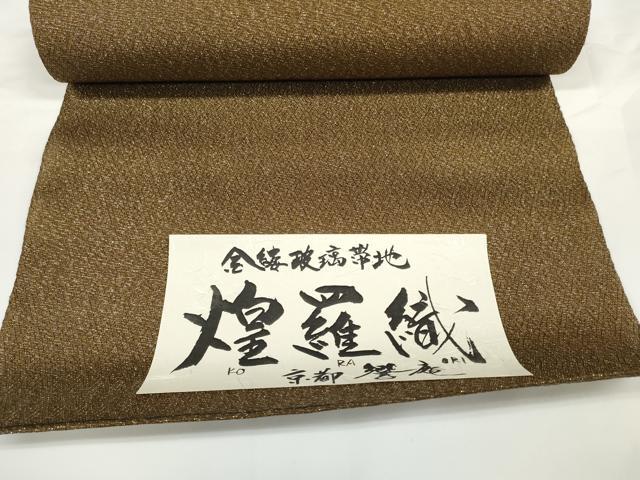 金縷玻璃帯地
煌羅織
KO RA ORI
京都